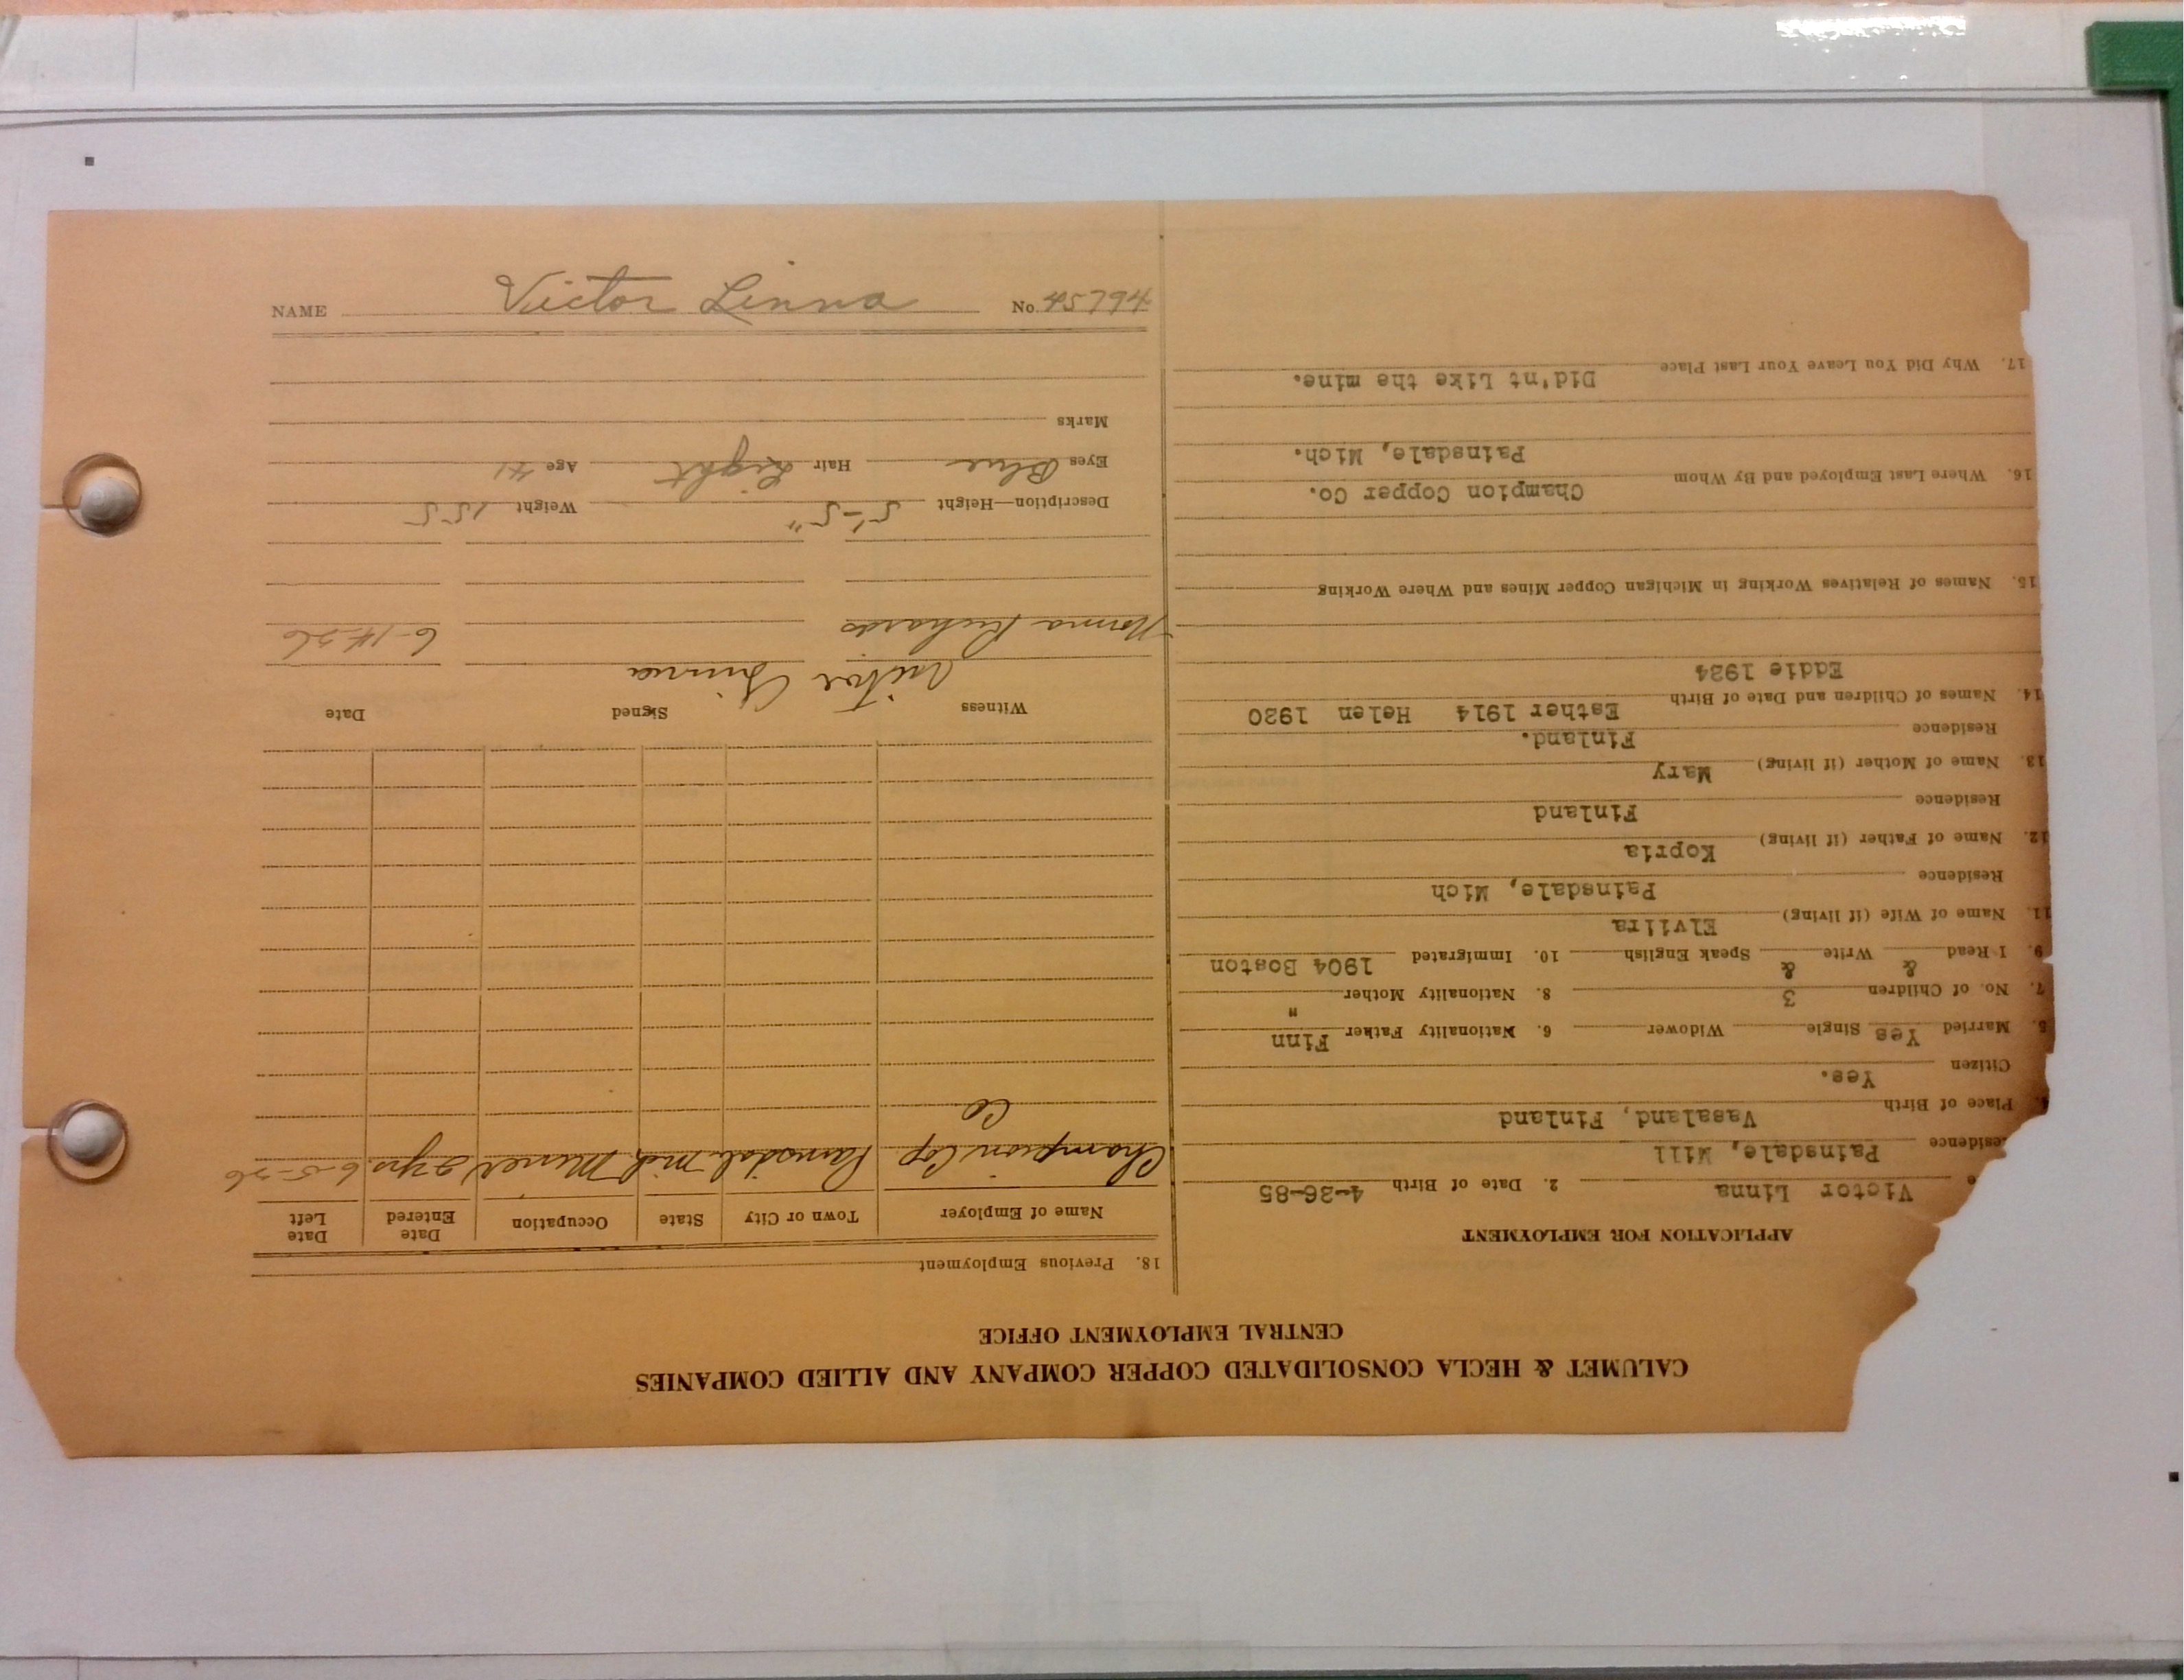 CALUMET & HECLA CONSOLIDATED COPPER COMPANY AND ALLIED COMPANIES
CENTRAL EMPLOYMENT OFFICE
APPLICATION FOR EMPLOYMENT
e Victor Linna 2. Date of Birth 4-26-85
Residence Painsdale, Mill
Place of Birth Vasaland, Finland
Citizen Yes.
5. Married Yes Single Widower 6. Nationality Father Finn
7. No. of Children 3 8. Nationality Mother "
9. I Read & Write & Speak English 10. Immigrated 1904 Boston
11. Name of Wife (if living) Elviira
Residence Painsdale, Mich
12. Name of Father (if living) Kopria
Residence Finland
13. Name of Mother (if living) Mary
Residence Finland.
14. Names of Children and Date of Birth Esther 1914 Helen 1920
Eddie 1924
15. Names of Relatives Working in Michigan Copper Mines and Where Working
16. Where Last Employed and By Whom Champion Copper Co.
Painsdale, Mich.
17. Why Did You Leave Your Last Place Did'nt Like the mine.
18. Previous Employment
Name of Employer Town or City State Occupation Date Entered Date Left
Champion Cop Painsdale Mich Miner 2 yrs. 6-5-26
Co
Witness Signed Date
Victor Linna
Norma Richards 6-14-26
Description—Height 5'-5" Weight 155
Eyes Blue Hair Light Age 41
Marks
NAME Victor Linna No. 45794